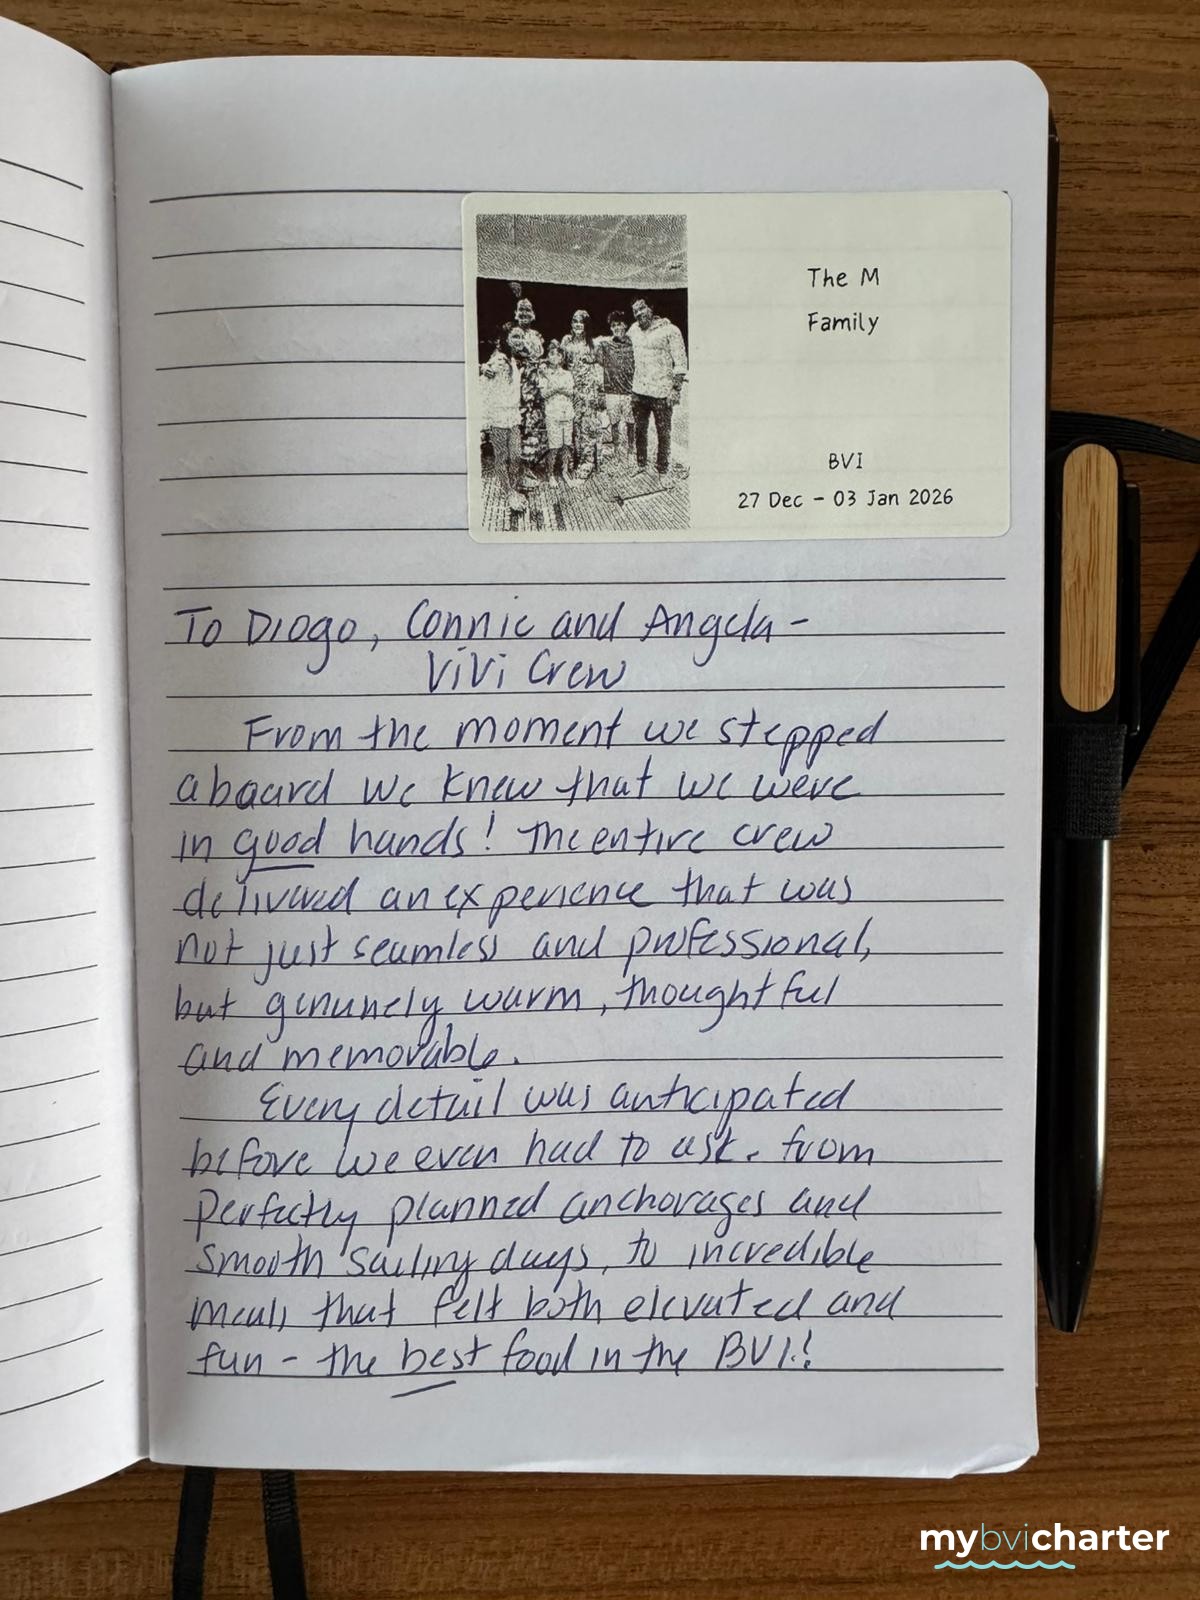 The M
Family
BVI
27 Dec - 03 Jan 2026
To Diogo, Connie and Angela -
ViVi Crew
From the moment we stepped
aboard we knew that we were
in good hands! The entire crew
delivered an experience that was
not just seamless and professional,
but genuinely warm, thoughtful
and memorable.
Every detail was anticipated
before we even had to ask. From
perfectly planned anchorages and
smooth sailing days, to incredible
meals that felt both elevated and
fun - the best food in the BVI!
mybvicharter